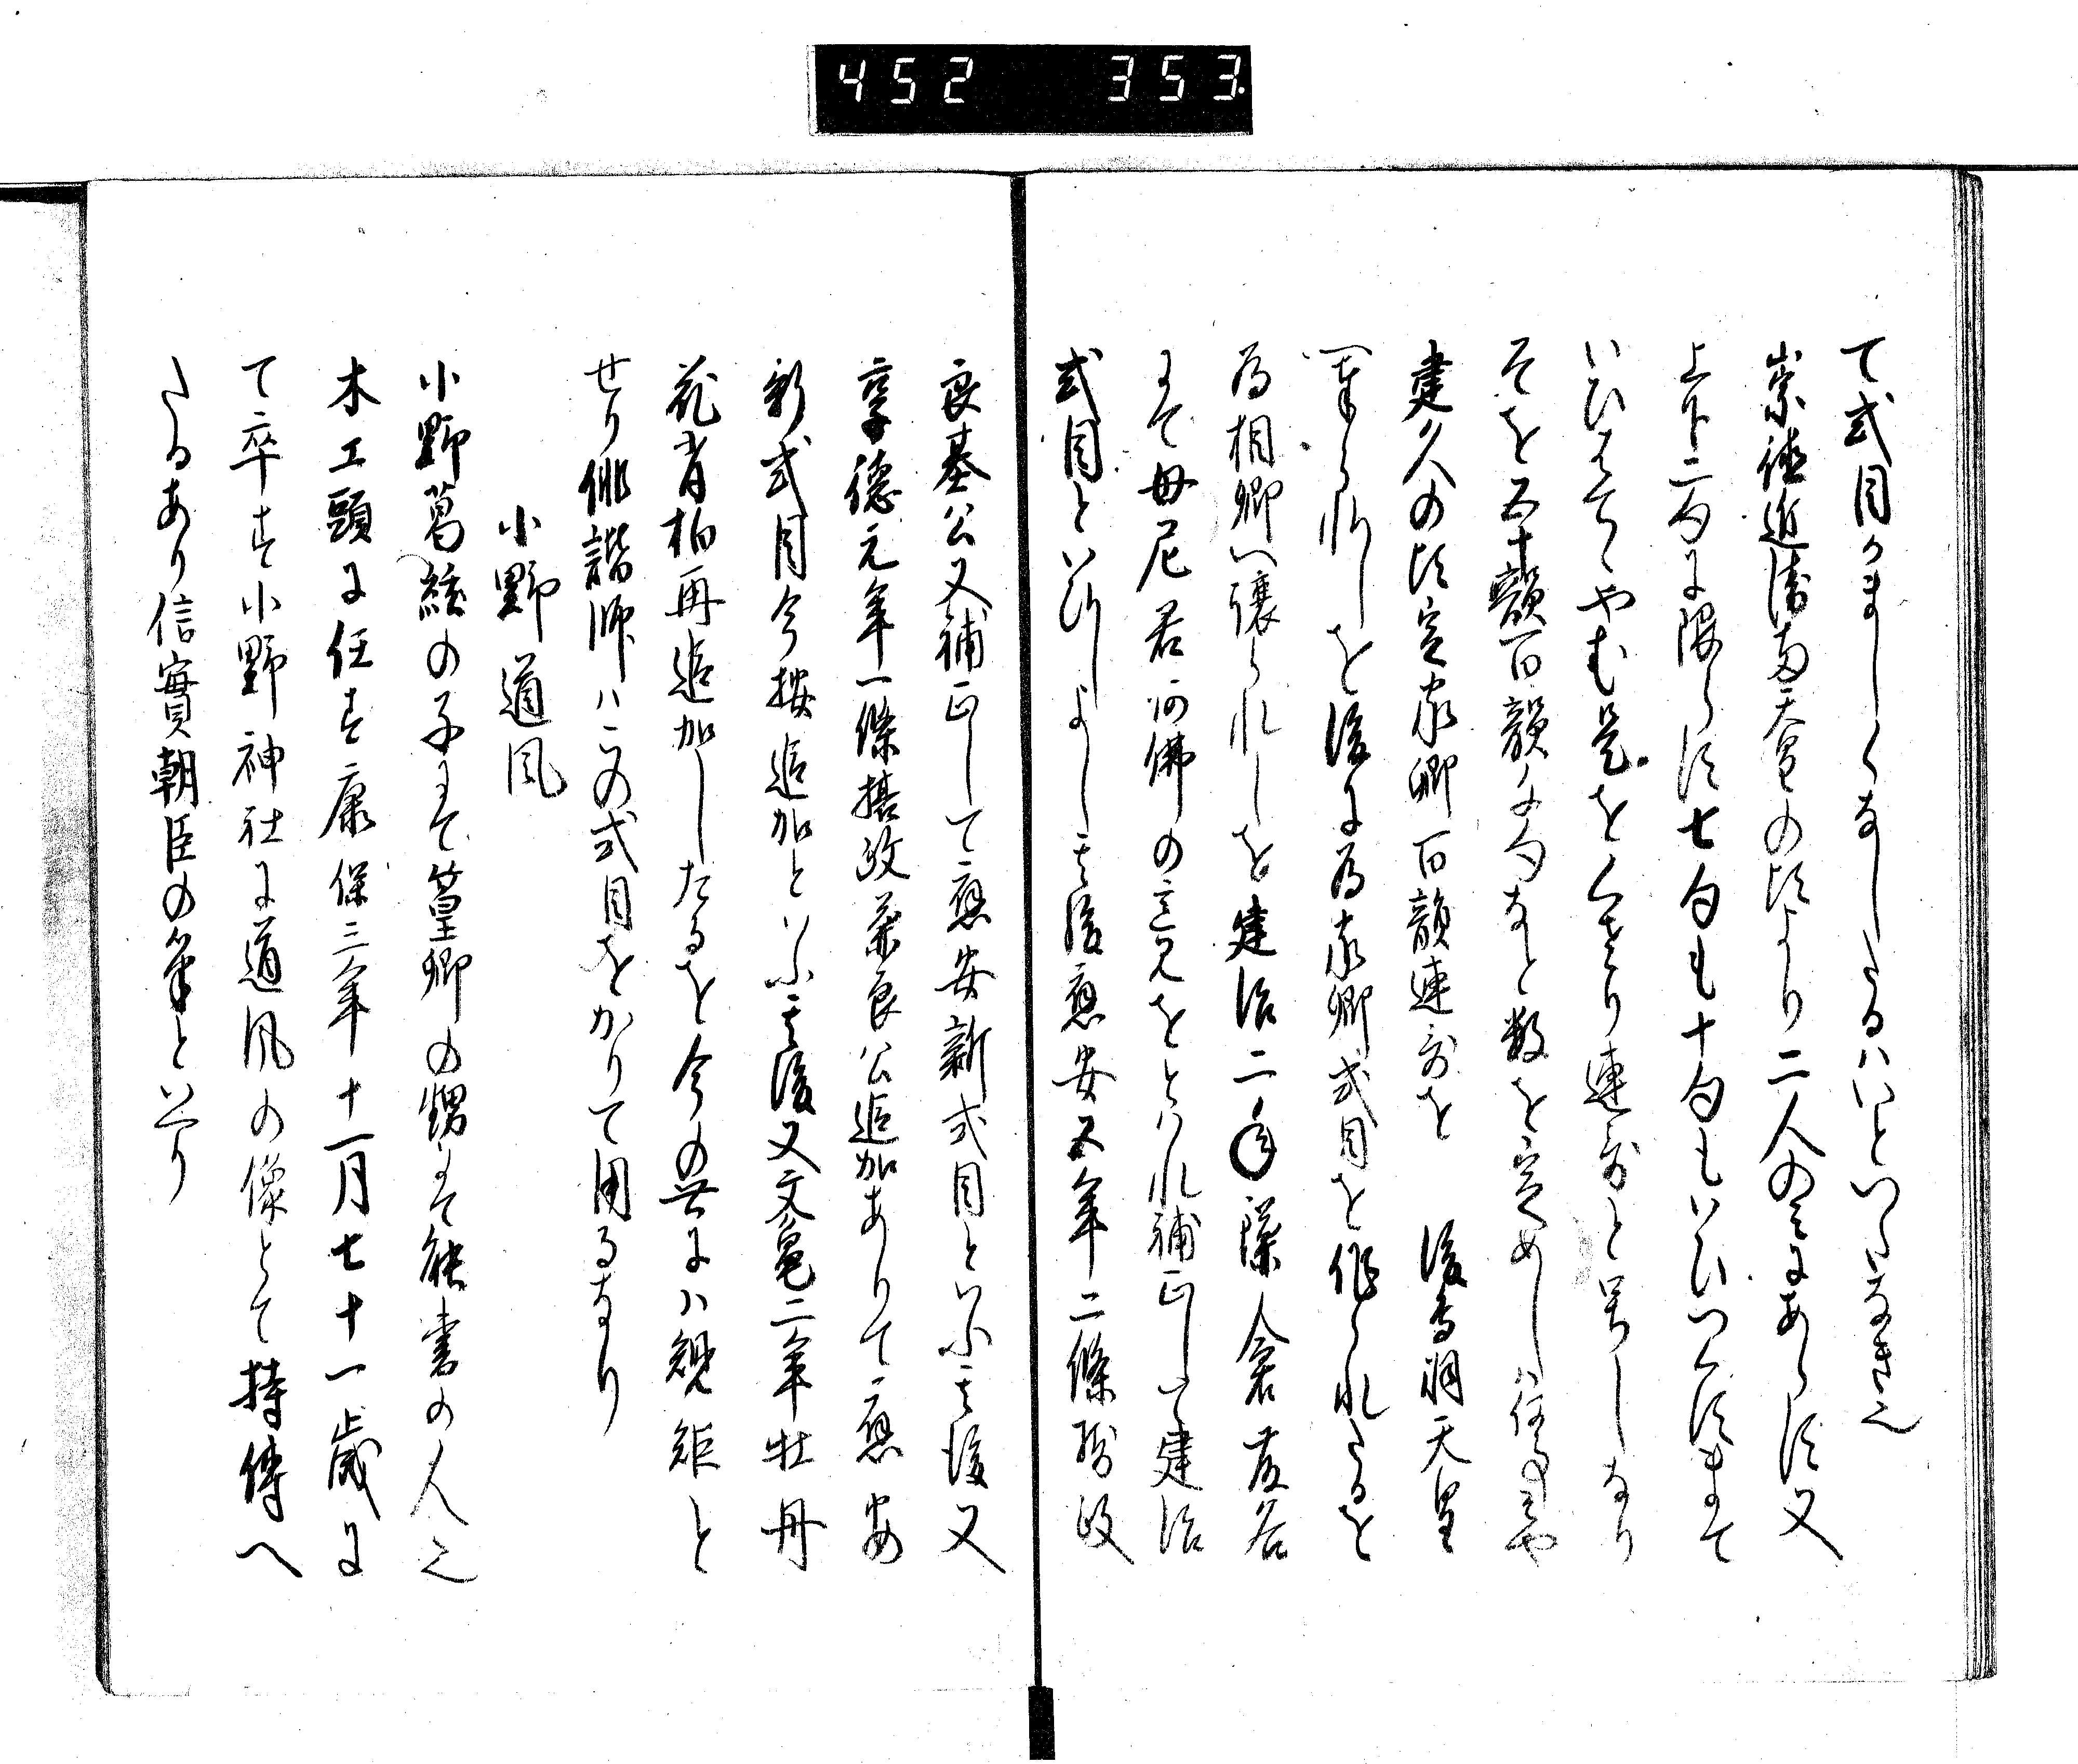 452 353
て式目かましくなしたるハいといたなき也
崇徳近衛両天皇の比より二人のミにあらす又
上下二句に限らす七句も十句もいひつゝけすまて
いひすてゝやむ是をくさり連哥と号しなり
そを五十韻百韻千句なと数を定めしハ
建久の比定家卿百韻連哥を 後鳥羽天皇
へ奉られしを後に為家卿式目を作られたるを
為相卿へ譲られしを建治二年鎌倉藤谷
にて母尼君阿佛の意見をとハれ補正して建治
式目といひしよし其後應安五年二條摂政
良基公又補正して應安新式目といふ其後又
享徳元年一條摂政兼良公追加ありて應安
新式目今按追加といふ其後又文亀二年牡丹
花肖柏再追加したるを今の世にハ規矩と
せり俳諧師ハこの式目をかりて用るなり
小野道風
小野葛絃の子にて篁卿の甥にて能書の人也
木工頭に任す康保三年十一月七十一歳に
て卒す小野神社に道風の像とて持傳へ
たるあり信實朝臣の筆といへり